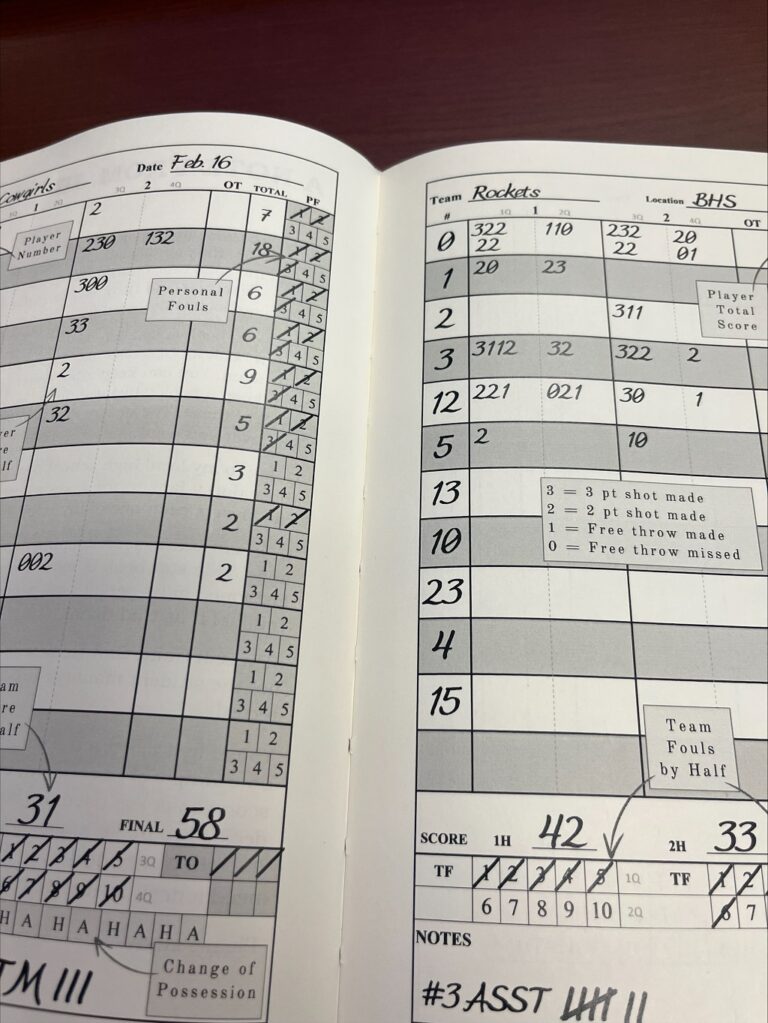 Cowgirls Date Feb. 16
3Q 2 4Q OT TOTAL PF
1 2Q
2 7 1 2
3 4 5
Player Number
230 132 18 1 2
3 4 5
300 6 1 2
3 4 5
Personal Fouls
33 6 1 2
3 4 5
2 9 1 2
3 4 5
32 5 1 2
3 4 5
3 1 2
3 4 5
2 1 2
3 4 5
002 2 1 2
3 4 5
1 2
3 4 5
1 2
3 4 5
1 2
3 4 5
31 FINAL 58
1 2 3 4 5 3Q TO
6 7 8 9 10 4Q
H A H A H A H A
Change of Possession
TM III
Team Rockets Location BHS
# 1Q 1 2Q 3Q 2 4Q OT
0 322 110 232 20
22 22 01
1 20 23
Player Total Score
2 311
3 3112 32 322 2
12 221 021 30 1
5 2 10
13
3 = 3 pt shot made
2 = 2 pt shot made
1 = Free throw made
0 = Free throw missed
10
23
4
15
Team Fouls by Half
SCORE 1H 42 2H 33
TF 1 2 3 4 5 1Q TF 1 2
6 7 8 9 10 2Q 6 7
NOTES
#3 ASST IIII II